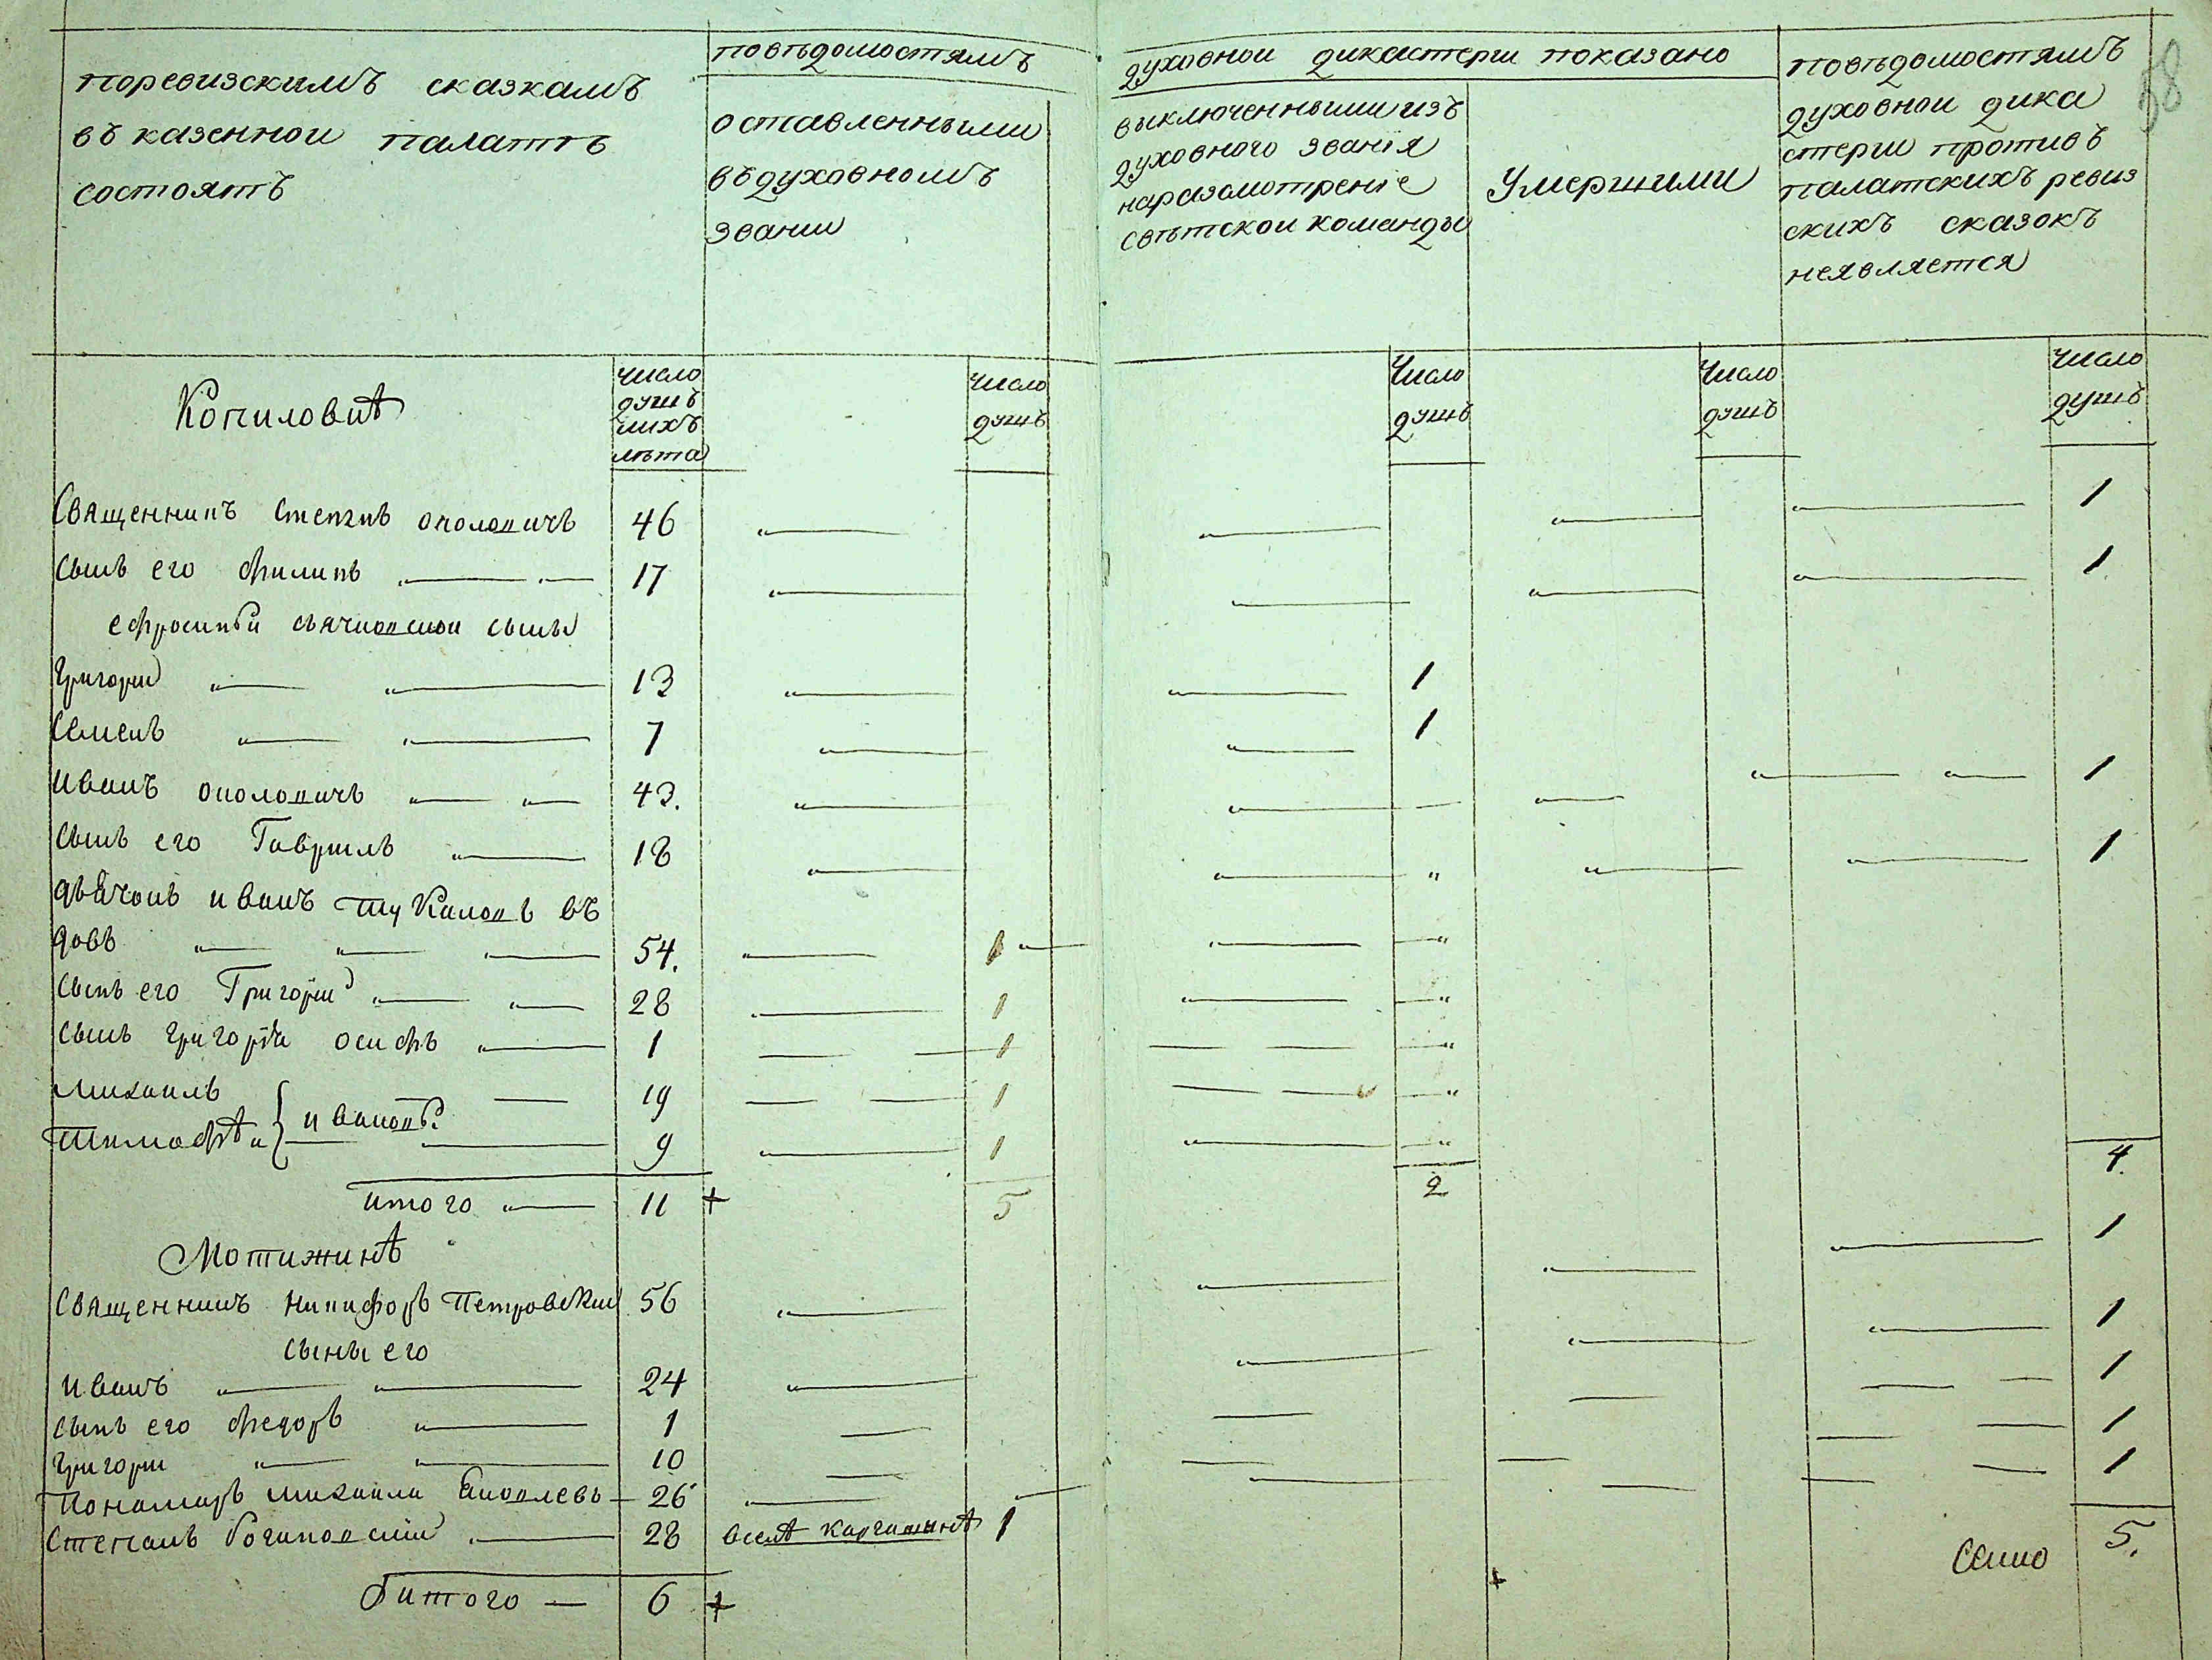 поревизскимъ сказкамъ
въ казенной палатѣ
состоятъ
повѣдомостямъ
оставленными
въ духовномъ
звании
духовной дикастерии показано
выключенными изъ
духовного званія
наразсмотреніе
свѣтской команды
Умершими
повѣдомостямъ
духовной дика
стерии противъ
палатскихъ ревиз
скихъ сказокъ
неявляется
58
Копиловѣ
число
душъ
ихъ
лѣта
число
душъ
Число
душъ
Число
душъ
Число
душъ
Священникъ Степанъ 46 1
сынъ его Филипъ 17 1
сыны
Григории 13 1
Семенъ 7 1
Иванъ 43. 1
сынъ его Гаврилъ 18 1
дьячокъ иванъ въ
довъ 54. 1
сынъ его Григории 28 1
сынъ григорія осифъ 1 1
Михаилъ 19 1
ивановы
Тимофѣи 9 1
итого 11 + 5 2 4.
Мотижинѣ
Священникъ Никифоръ Петровскии 56 1
сыны его
иванъ 24 1
сынъ его федоръ 1 1
григории 10 1
Пономаръ михаила 26 1
Степанъ 28 вселѣ 1
5.
итого 6 +